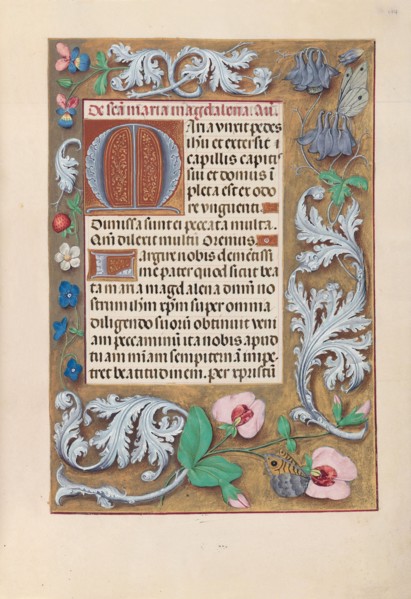 De scā maria magdalena. Añ.
Maria unxit pedes
ihu et extersit
capillis capitis
sui et domus ī
pleta est ex odo
re unguenti.
Dimissa sunt ei peccata multa.
Qm̄ dilexit multū Oremus.
Largire nobis clementissi
me pater quod sicut bea
ta maria magdalena dnm̄ no
strum ihm̄ xpm̄ super omnia
diligendo suorū obtinuit veni
am peccaminū ita nobis apud
tuam mīam sempiternā impe
tret beatitudinem. per xpristū